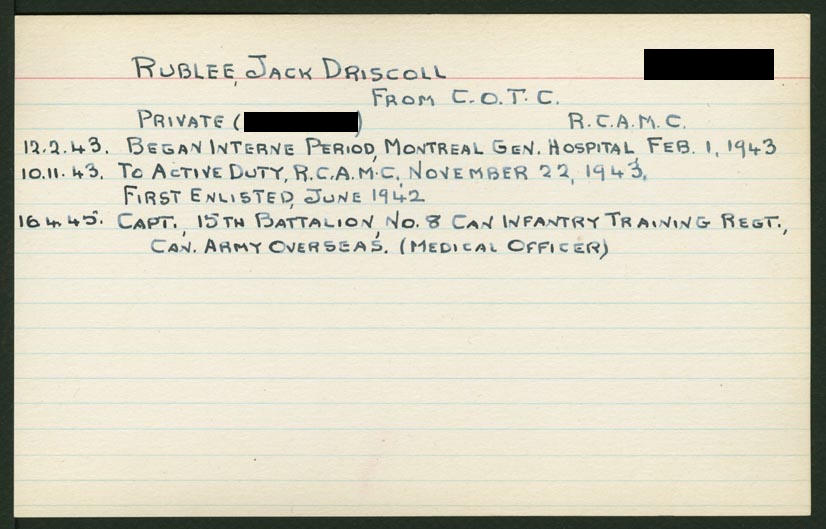 RUBLEE, JACK DRISCOLL
FROM C.O.T.C.
PRIVATE ( ) R.C.A.M.C.
12.2.43. BEGAN INTERNE PERIOD, MONTREAL GEN. HOSPITAL FEB. 1, 1943
10.11.43. TO ACTIVE DUTY, R.C.A.M.C, NOVEMBER 22, 1943,
FIRST ENLISTED, JUNE 1942
16.4.45. CAPT., 15TH BATTALION, NO. 8 CAN INFANTRY TRAINING REGT.,
CAN. ARMY OVERSEAS. (MEDICAL OFFICER)